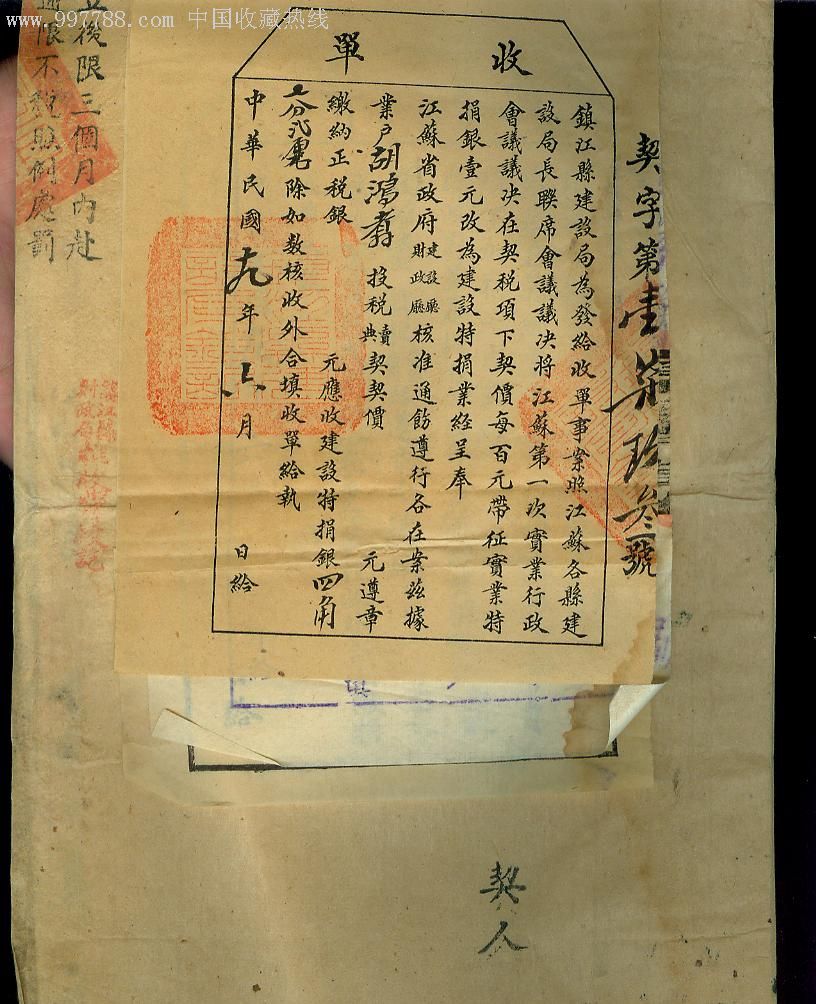 www.997788.com 中国收藏热线
收單
契字第壹柒玖叁號
鎮江縣建設局為發給收單事案照江蘇各縣建
設局長聯席會議議決將江蘇第一次實業行政
會議議決在契税項下契價每百元帶征實業特
捐銀壹元改為建設特捐業經呈奉
江蘇省政府建設廳財政廳核准通飭遵行各在案茲據
業户胡鴻 投税賣典契契價 元遵章
繳納正税銀 元應收建設特捐銀四角
分弍 除如数核收外合填收單給執
中華民國十九年 月 日給
立後限三個月內赴
逾限不税照例處罰
契人